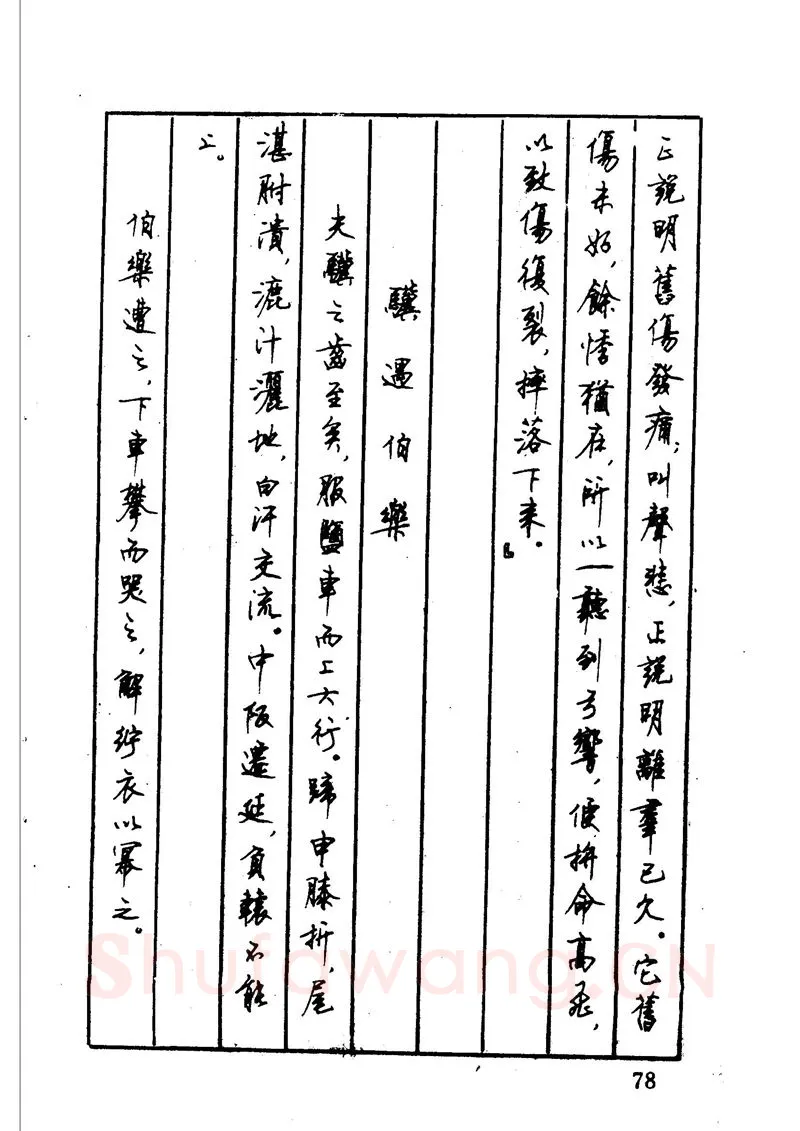 正說明舊傷發痛；叫聲悲，正說明離羣已久。它舊
傷未好，餘悸猶在，所以一聽到弓響，便拚命高飛，
以致傷復裂，摔落下來。
驥遇伯樂
夫驥之齒至矣，服鹽車而上大行。蹄申膝折，尾
湛胕潰，漉汁灑地，白汗交流。中阪遷延，負轅不能
上。
伯樂遭之，下車攀而哭之，解紵衣以冪之。
78
Shufawang.CN